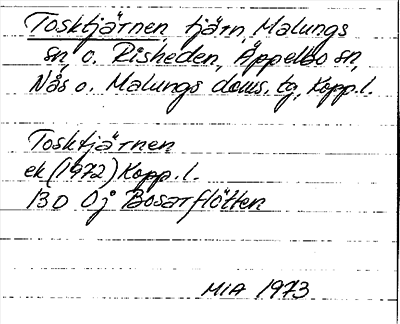 Tosktjärnen tjärn, Malungs
sn, o. Risheden, Äppelbo sn,
Nås, o. Malungs doms. tg, Kopp.l.
Tosktjärnen
ek (1972) Kopp.l.
13D 0j Bosarflötten
MIA 1973